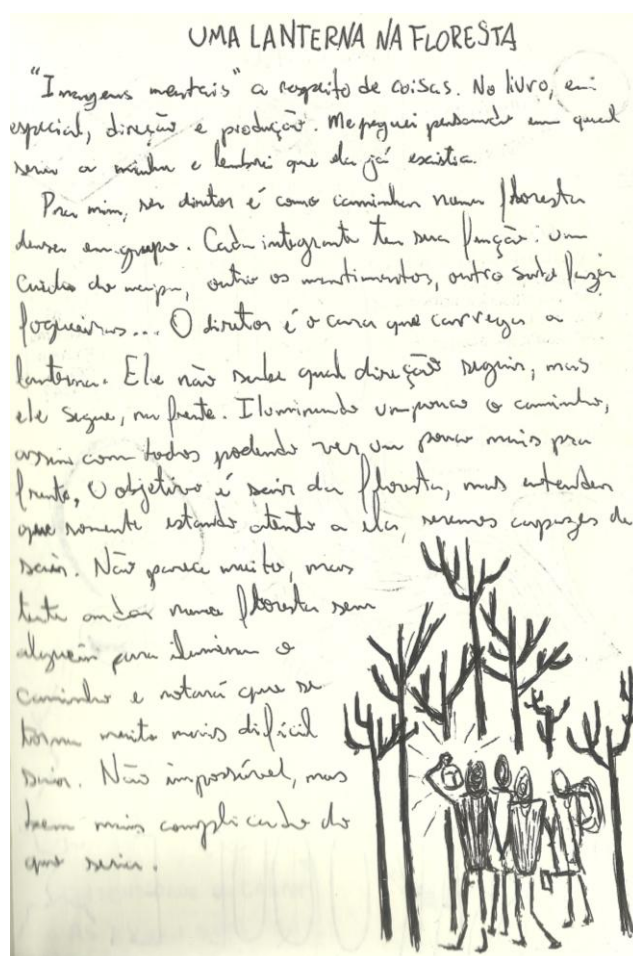 UMA LANTERNA NA FLORESTA
"Imagens mentais" a respeito de coisas. No livro, em
especial, direção e produção. Me peguei pensando em qual
seria a minha e lembrei que ela já existia.
Pra mim, ser diretor é como caminhar numa floresta
densa em grupo. Cada integrante tem sua função: um
cuida do mapa, outro os mantimentos, outro sabe fazer
fogueiras... O diretor é o cara que carrega a
lanterna. Ele não sabe qual direção seguir, mas
ele segue, na frente. Iluminando um pouco o caminho,
assim com todos podendo ver um pouco mais pra
frente, O objetivo é sair da floresta, mas entender
que somente estando atento a ela, seremos capazes de
sair. Não parece muito, mas
tente andar numa floresta sem
alguém para iluminar o
caminho e notará que se
torna muito mais difícil
sair. Não impossível, mas
bem mais complicado do
que seria.